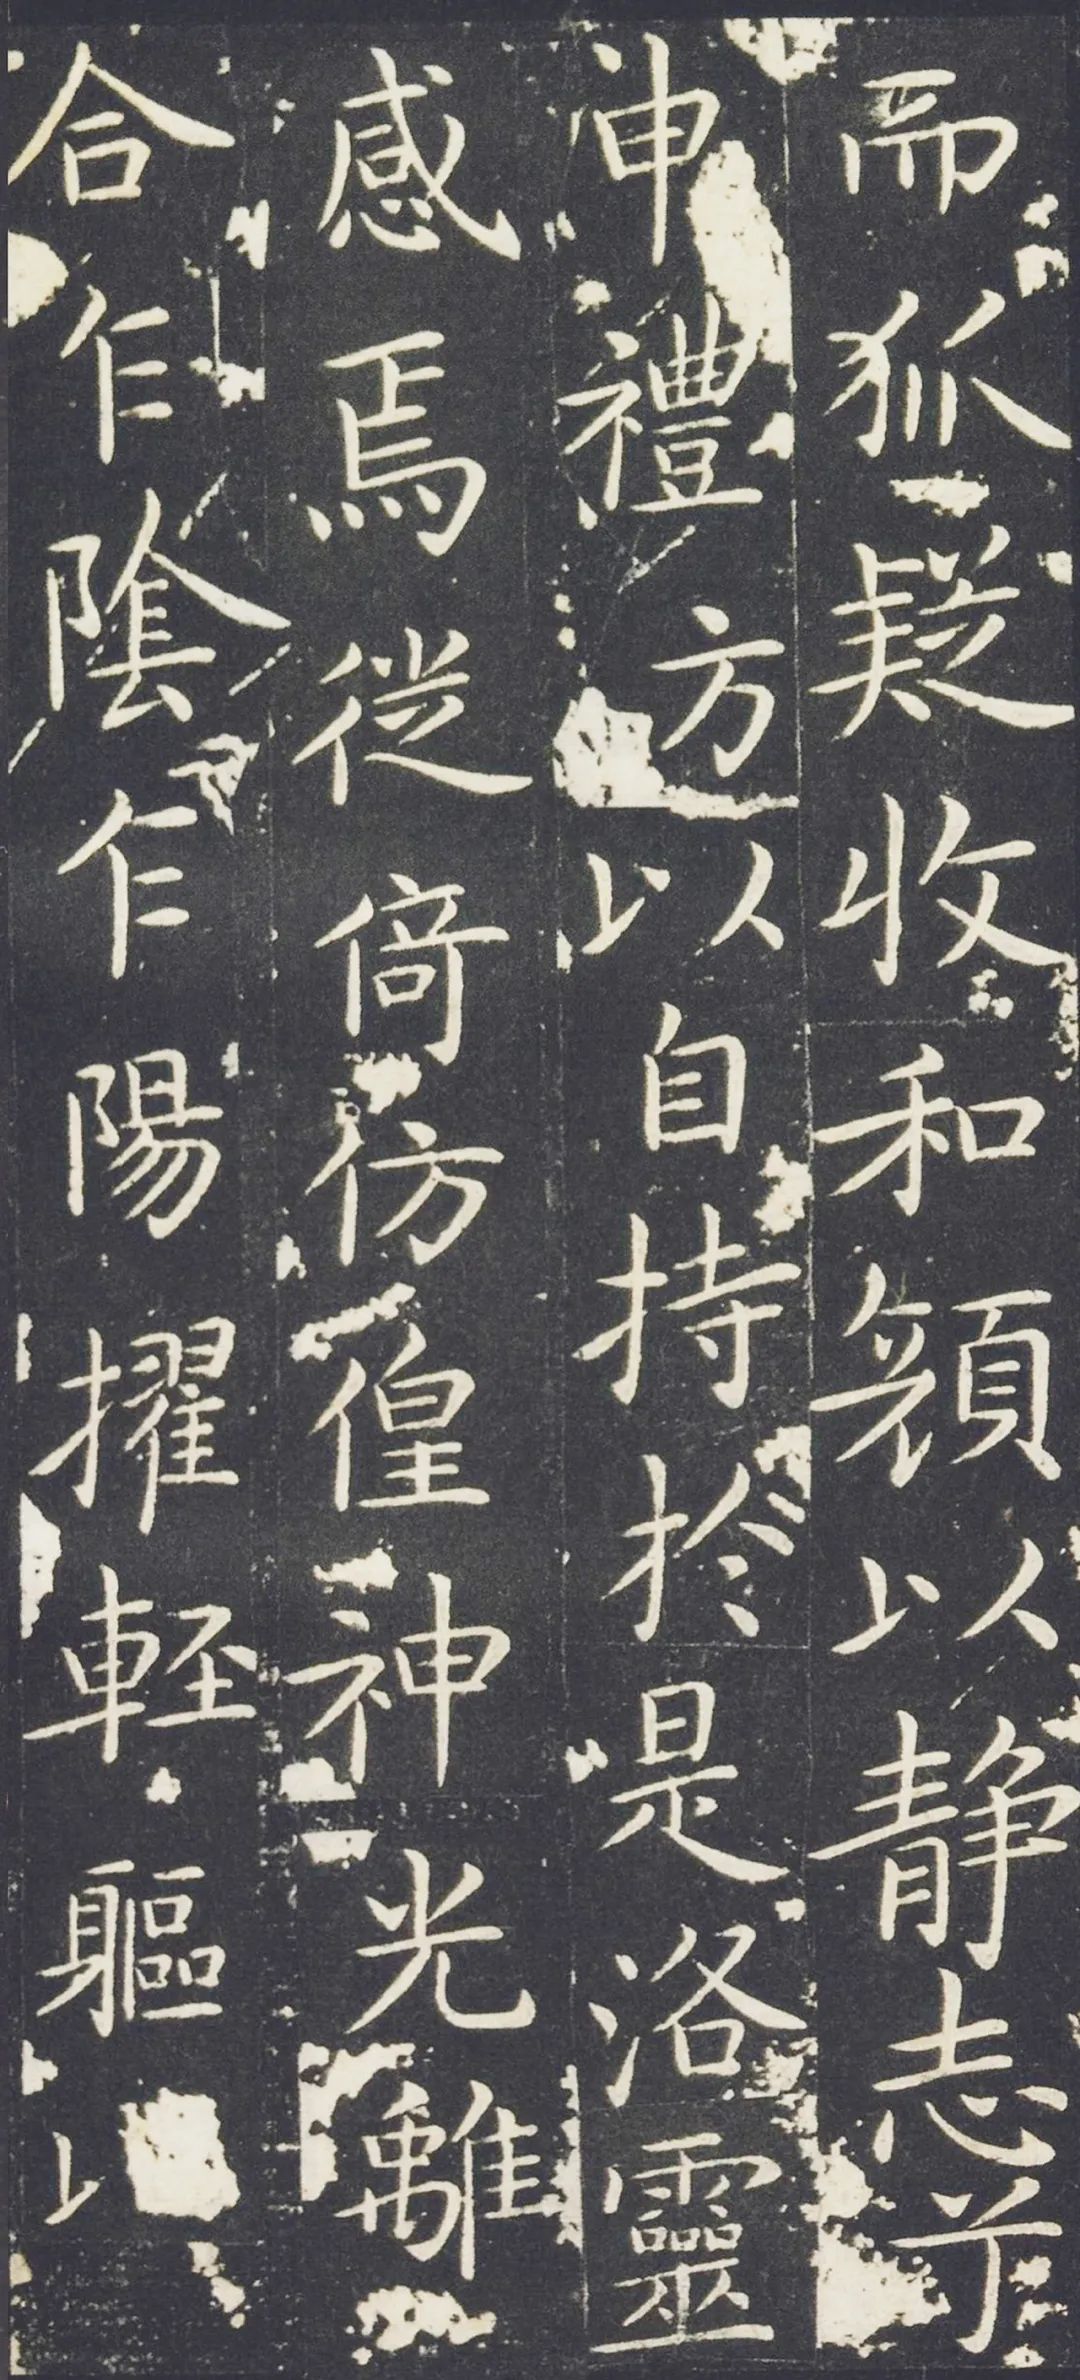 而狐疑收和顏以静志兮
申禮方以自持於是洛靈
感焉徙倚彷徨神光離
合乍陰乍陽擢輕軀以